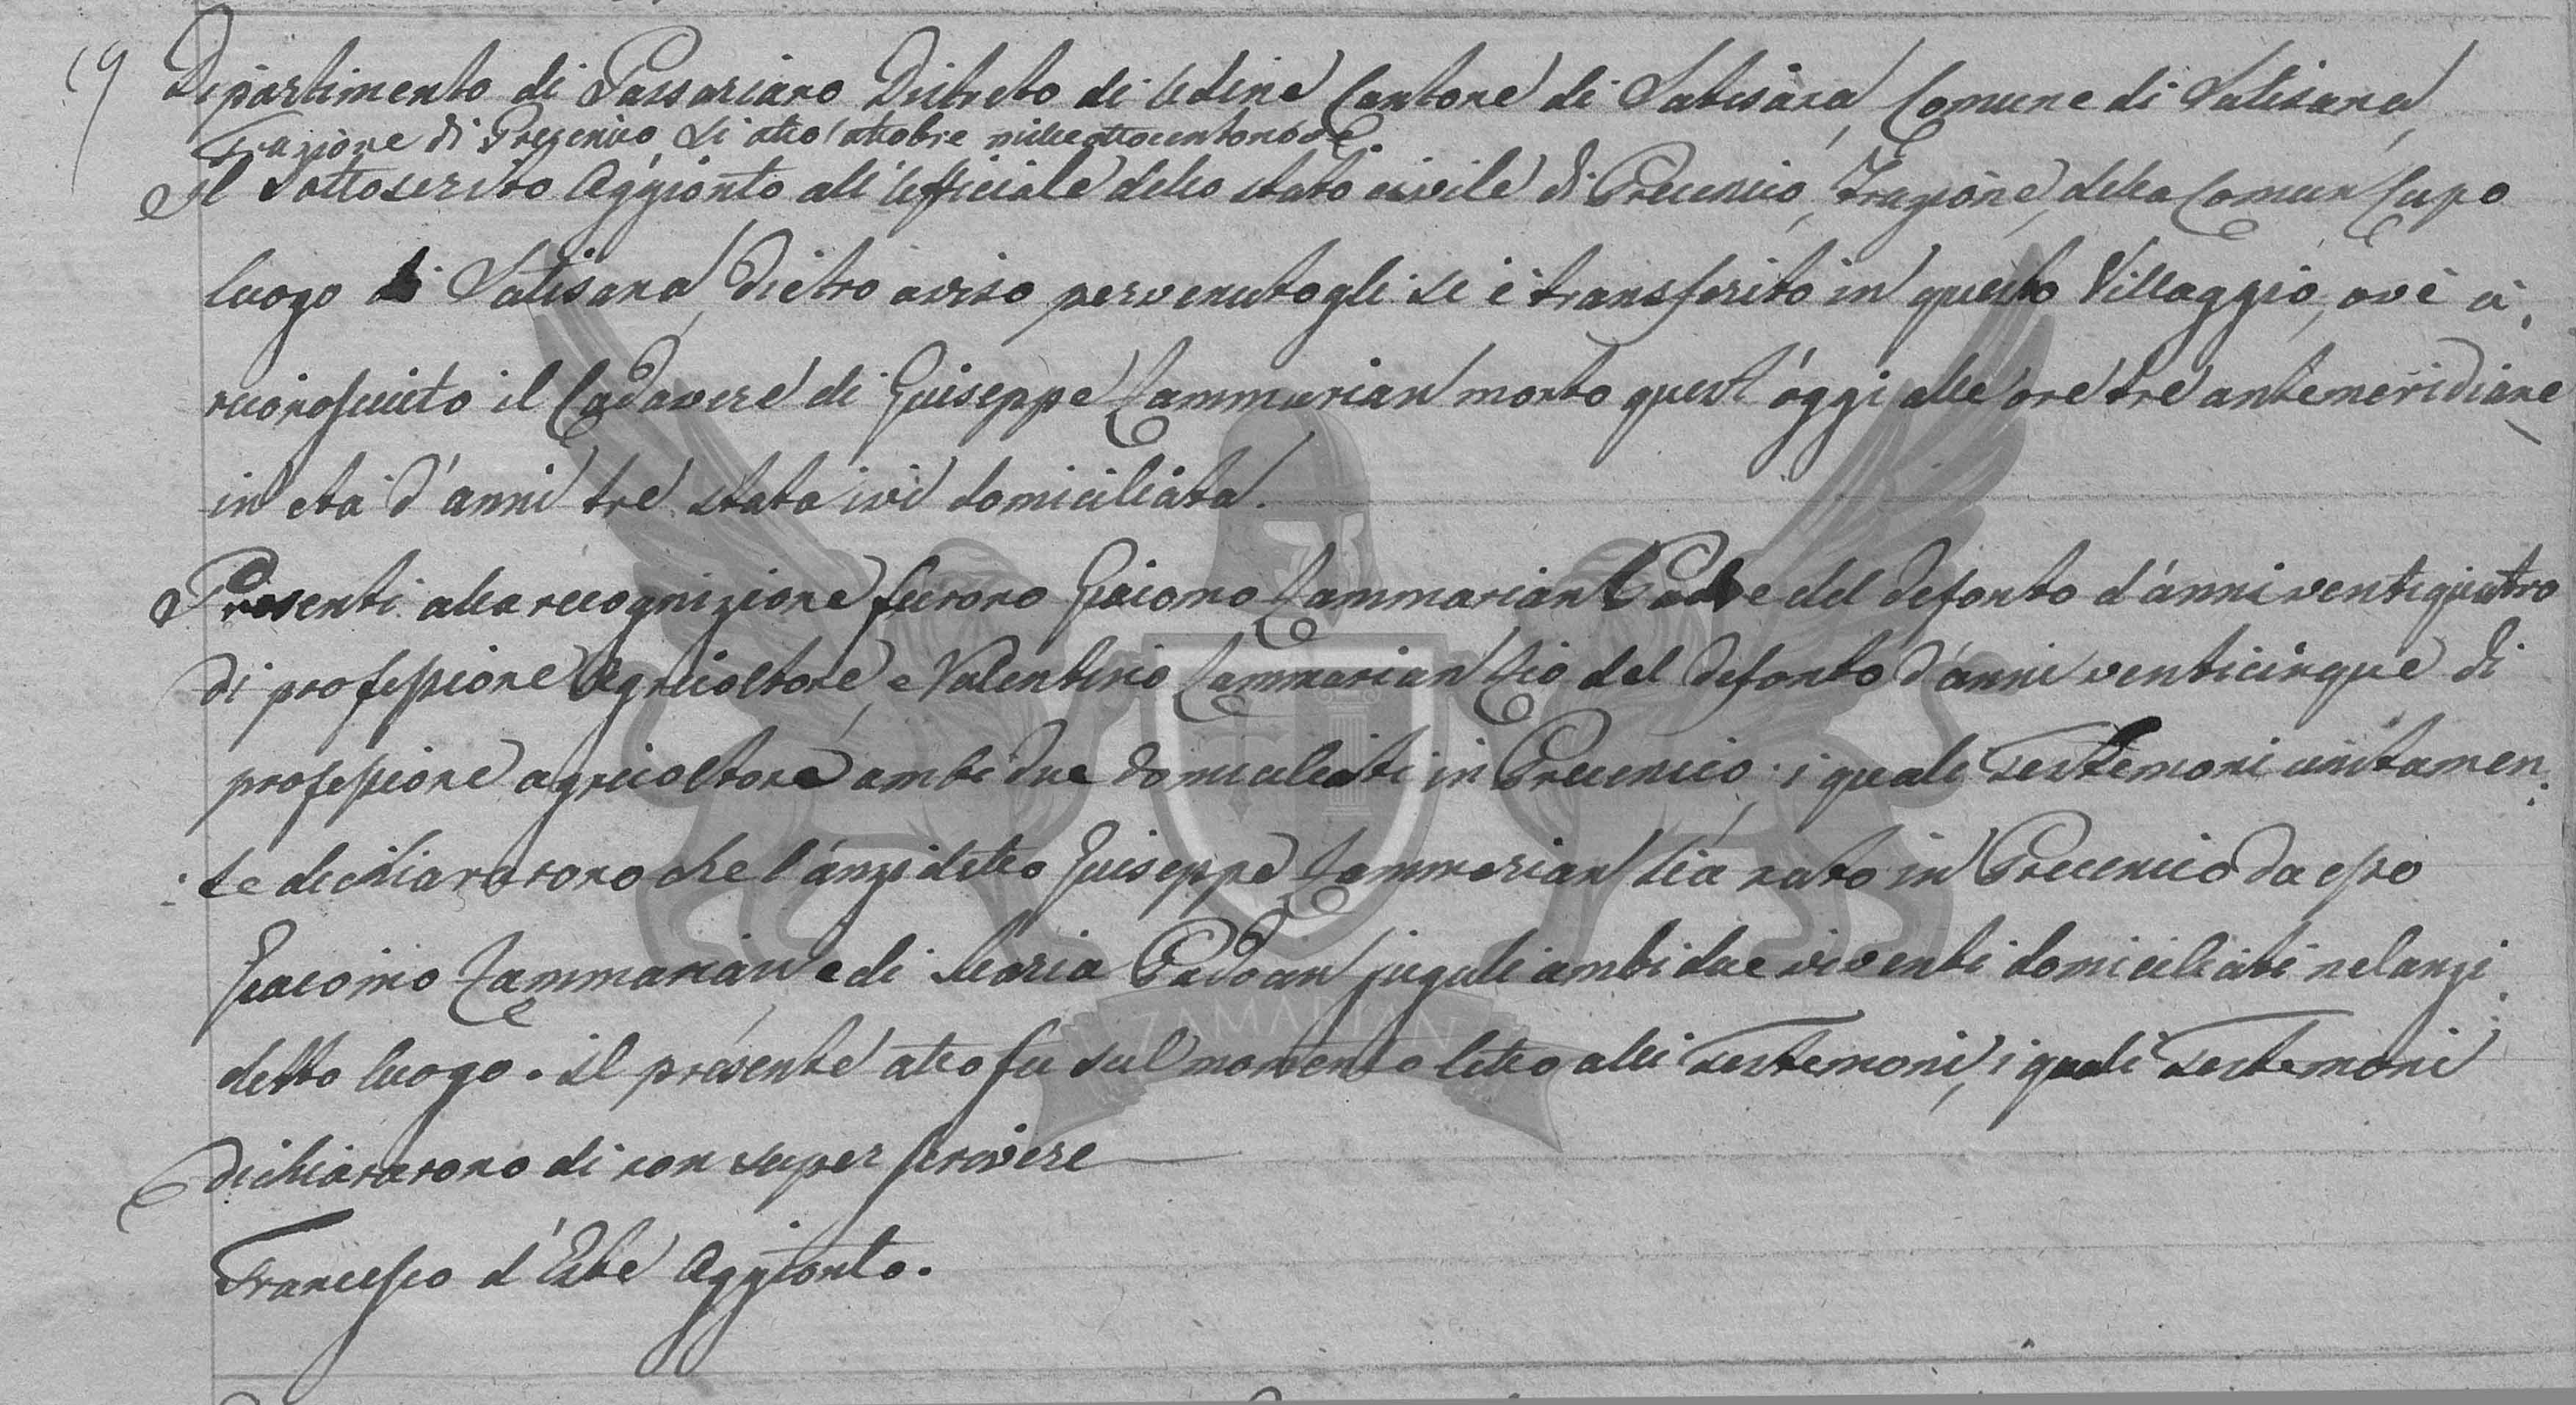 19 Dipartimento di Passariano Distreto di Udine Cantone di Latisana, Comune di Latisana,
Frazione di Precenico, li otto ottobre milleottocentonove
Il Sottoscrito Aggionto all'Ufficiale dello stato civile di Precenico, Frazione, della Comun Capo
luogo di Latisana, Dietro aviso pervenutogli si è transferito in questo Villaggio, ove à
riconosciuto il Cadavere di Guiseppe Zammarian morto quest'oggi alle ore tre antemeridiane
in età d'anni tre stata ivi domiciliata.
Presenti alla recognizione furono Giacomo Zammarian Padre del defonto d'anni ventiquatro
di professione Agricoltore, e Valentino Zammarian Zio del defonto d'anni venticinque di
professione agricoltore ambidue domiciliati in Precenico, i quali Testemoni unitamen:
:te dichiararono che l'anzidetto Guiseppe Zammarian sia nato in Precenico da esso
Giacomo Zammarian e di Maria Padoan jugali ambidue viventi domiciliati nel anzi
detto luogo. il presente atto fu sul momento letto alli Testemoni, i quali Testemoni
dichiararono di non saper scrivere
Francesco d'Este Aggionto.
ZAMARIAN